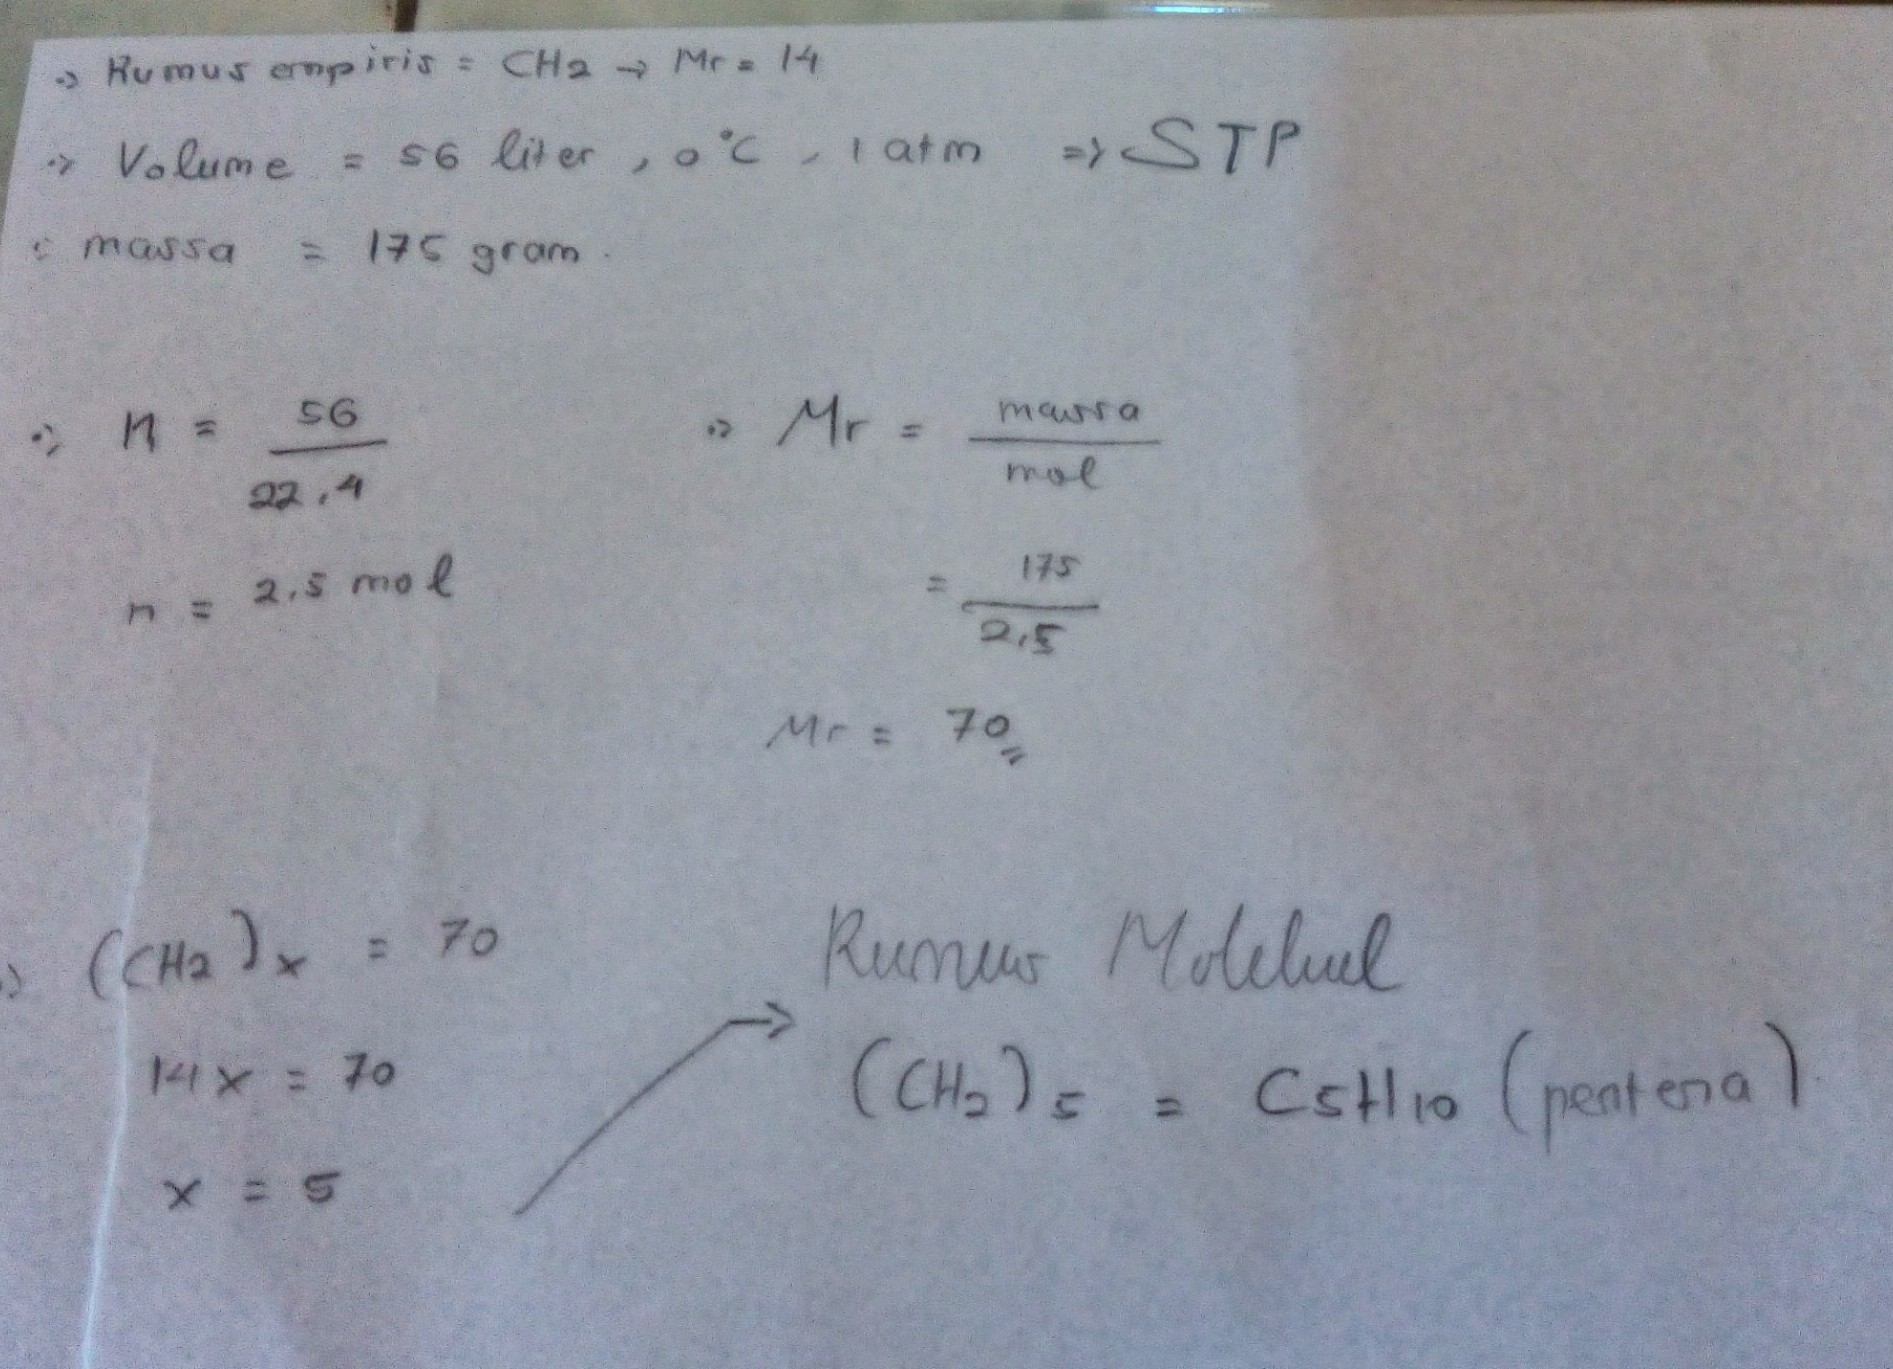 ∴ Rumus empiris = CH2 → Mr = 14
∴ Volume = 56 liter, 0°C, 1 atm ⇒ STP
∴ massa = 175 gram.
∴ n = 56 / 22,4
n = 2,5 mol
∴ Mr = massa / mol
= 175 / 2,5
Mr = 70
∴ (CH2)x = 70
14x = 70
x = 5
→ Rumus Molekul
(CH2)5 = C5H10 (pentena)